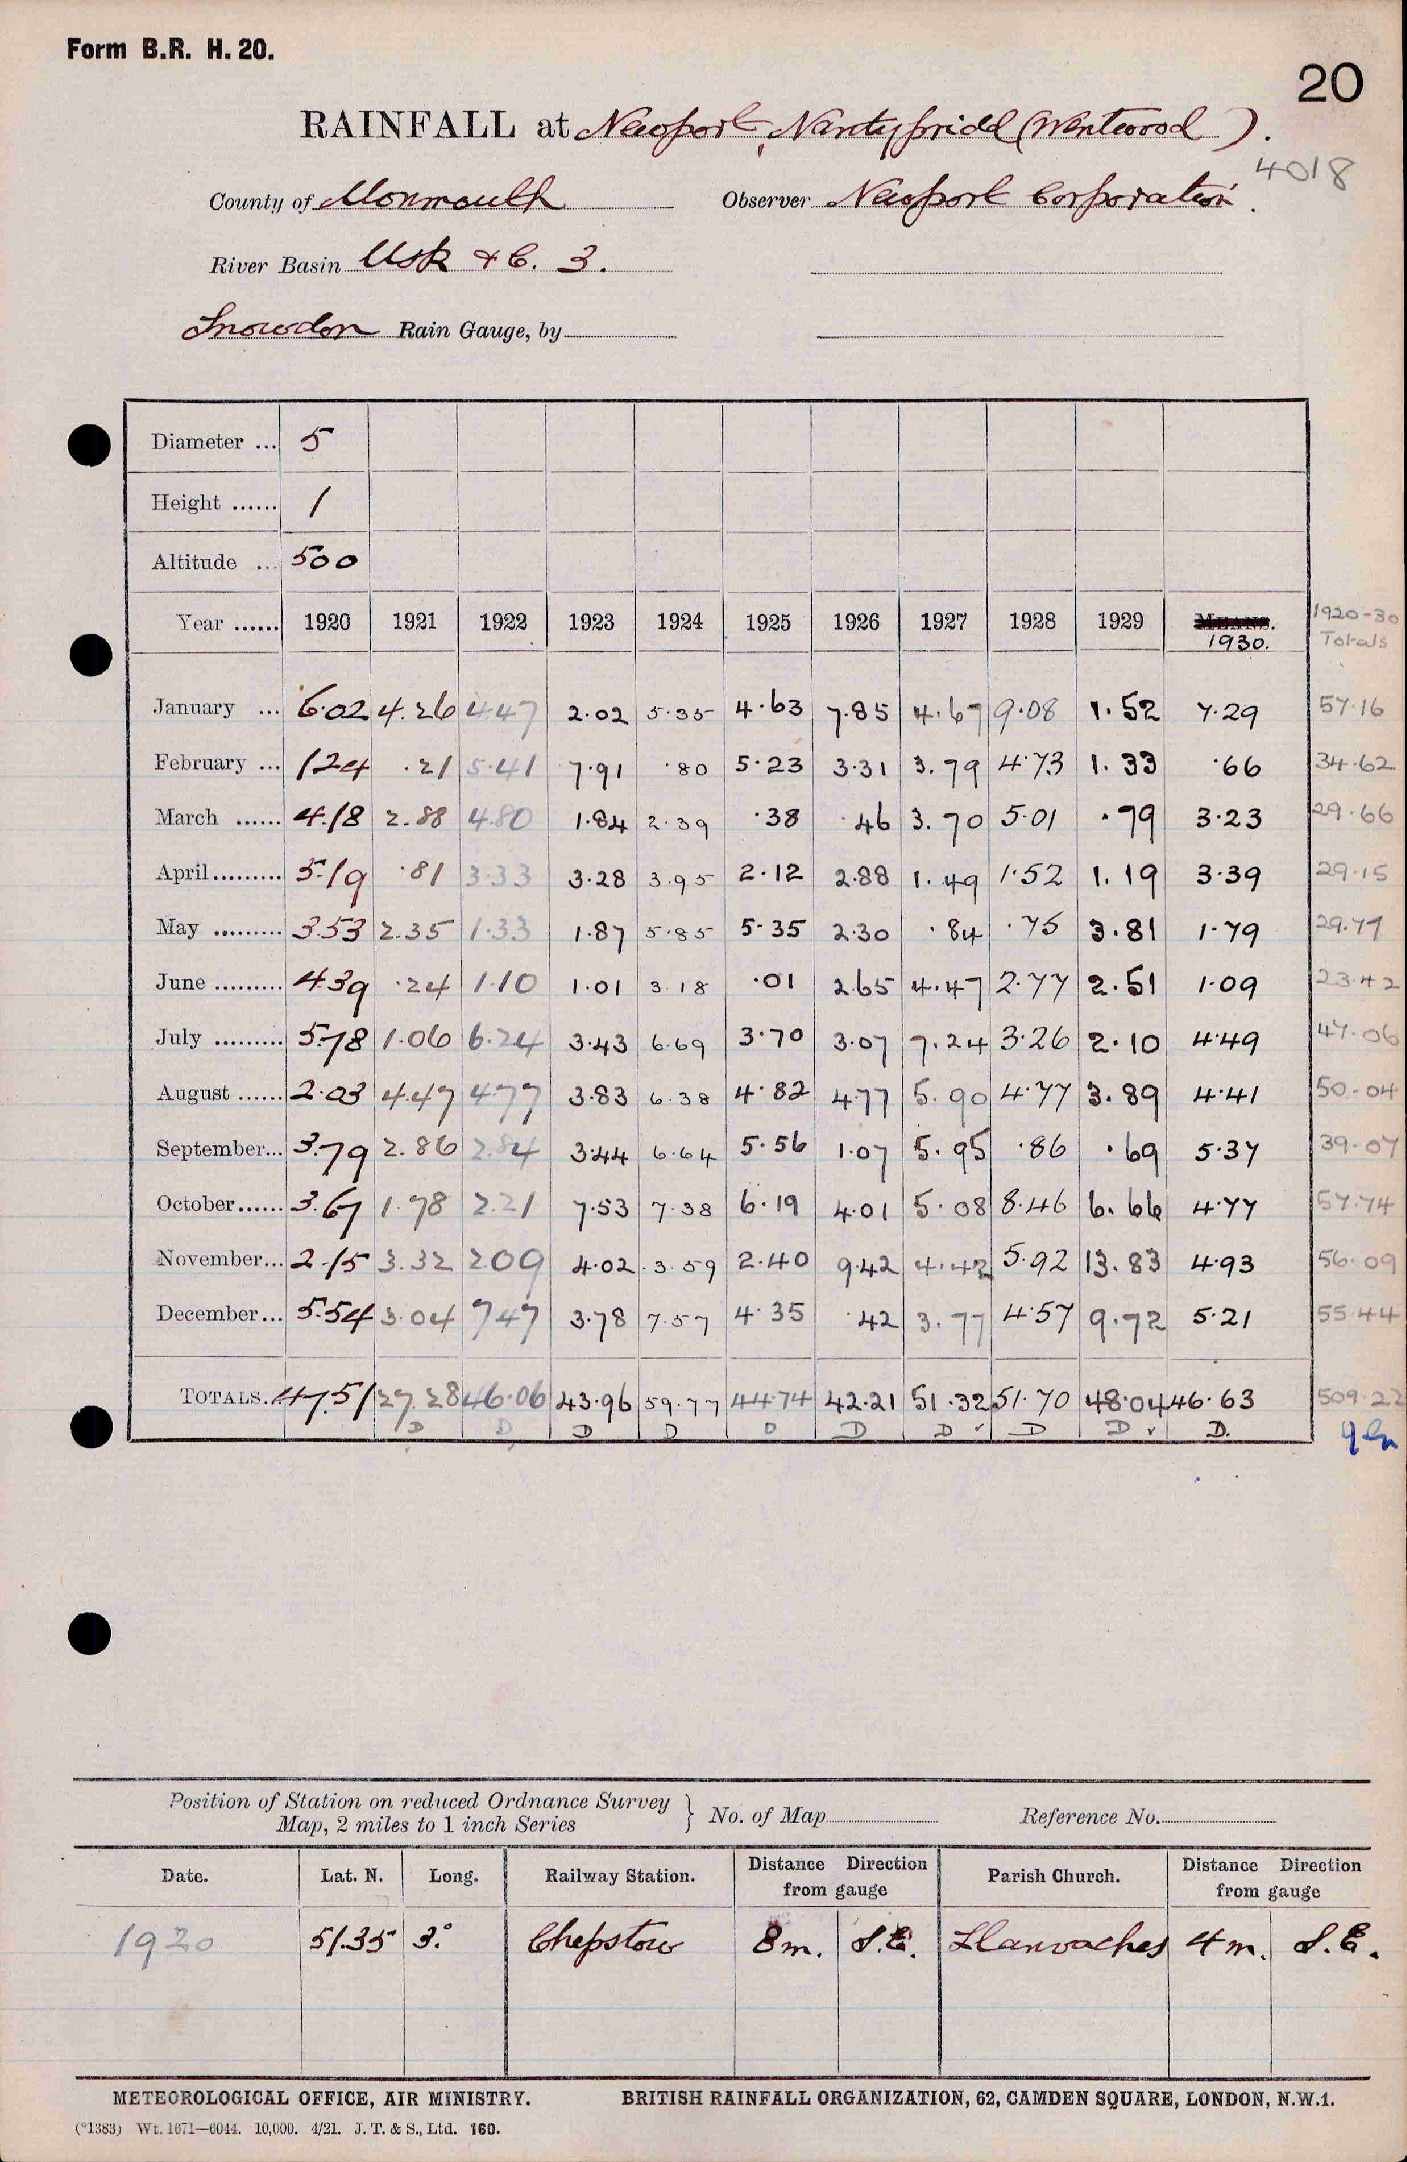 Form B.R. H. 20.
20
RAINFALL at Newport, Nantypridd (Wentwood).
4018
County of Monmouth Observer Newport Corporation.
River Basin Usk & C. 3.
Snowdon Rain Gauge, by
Diameter ... 5
Height ...... 1
Altitude ... 500
Year ...... 1920 1921 1922 1923 1924 1925 1926 1927 1928 1929 MEANS. 1920-30
1930. Totals
January ... 6.02 4.26 4.47 2.02 5.35 4.63 7.85 4.67 9.08 1.52 7.29 57.16
February ... 1.24 .21 5.41 7.91 .80 5.23 3.31 3.79 4.73 1.33 .66 34.62
March ...... 4.18 2.88 4.80 1.84 2.39 .38 .46 3.70 5.01 .79 3.23 29.66
April......... 5.19 .81 3.33 3.28 3.95 2.12 2.88 1.49 1.52 1.19 3.39 29.15
May ......... 3.53 2.35 1.33 1.87 5.85 5.35 2.30 .84 .75 3.81 1.79 29.77
June ......... 4.39 .24 1.10 1.01 3.18 .01 2.65 4.47 2.77 2.51 1.09 23.42
July ......... 5.78 1.06 6.24 3.43 6.69 3.70 3.07 7.24 3.26 2.10 4.49 47.06
August ...... 2.03 4.47 4.77 3.83 6.38 4.82 4.77 5.90 4.77 3.89 4.41 50.04
September... 3.79 2.86 2.84 3.44 6.64 5.56 1.07 5.95 .86 .69 5.37 39.07
October...... 3.67 1.78 2.21 7.53 7.38 6.19 4.01 5.08 8.46 6.66 4.77 57.74
November... 2.15 3.32 2.09 4.02 3.59 2.40 9.42 4.42 5.92 13.83 4.93 56.09
December... 5.54 3.04 7.47 3.78 7.57 4.35 .42 3.77 4.57 9.72 5.21 55.44
TOTALS. 47.51 27.28 46.06 43.96 59.77 44.74 42.21 51.32 51.70 48.04 46.63 509.22
D D D D D D D D D D.
Position of Station on reduced Ordnance Survey } No. of Map Reference No.
Map, 2 miles to 1 inch Series
Date. Lat. N. Long. Railway Station. Distance Direction Parish Church. Distance Direction
from gauge from gauge
1920 51.35 3.° Chepstow 8 m. S.E. Llanvaches 4 m. S.E.
METEOROLOGICAL OFFICE, AIR MINISTRY. BRITISH RAINFALL ORGANIZATION, 62, CAMDEN SQUARE, LONDON, N.W.1.
(*1383) Wt. 1671—6044. 10,000. 4/21. J. T. & S., Ltd. 160.